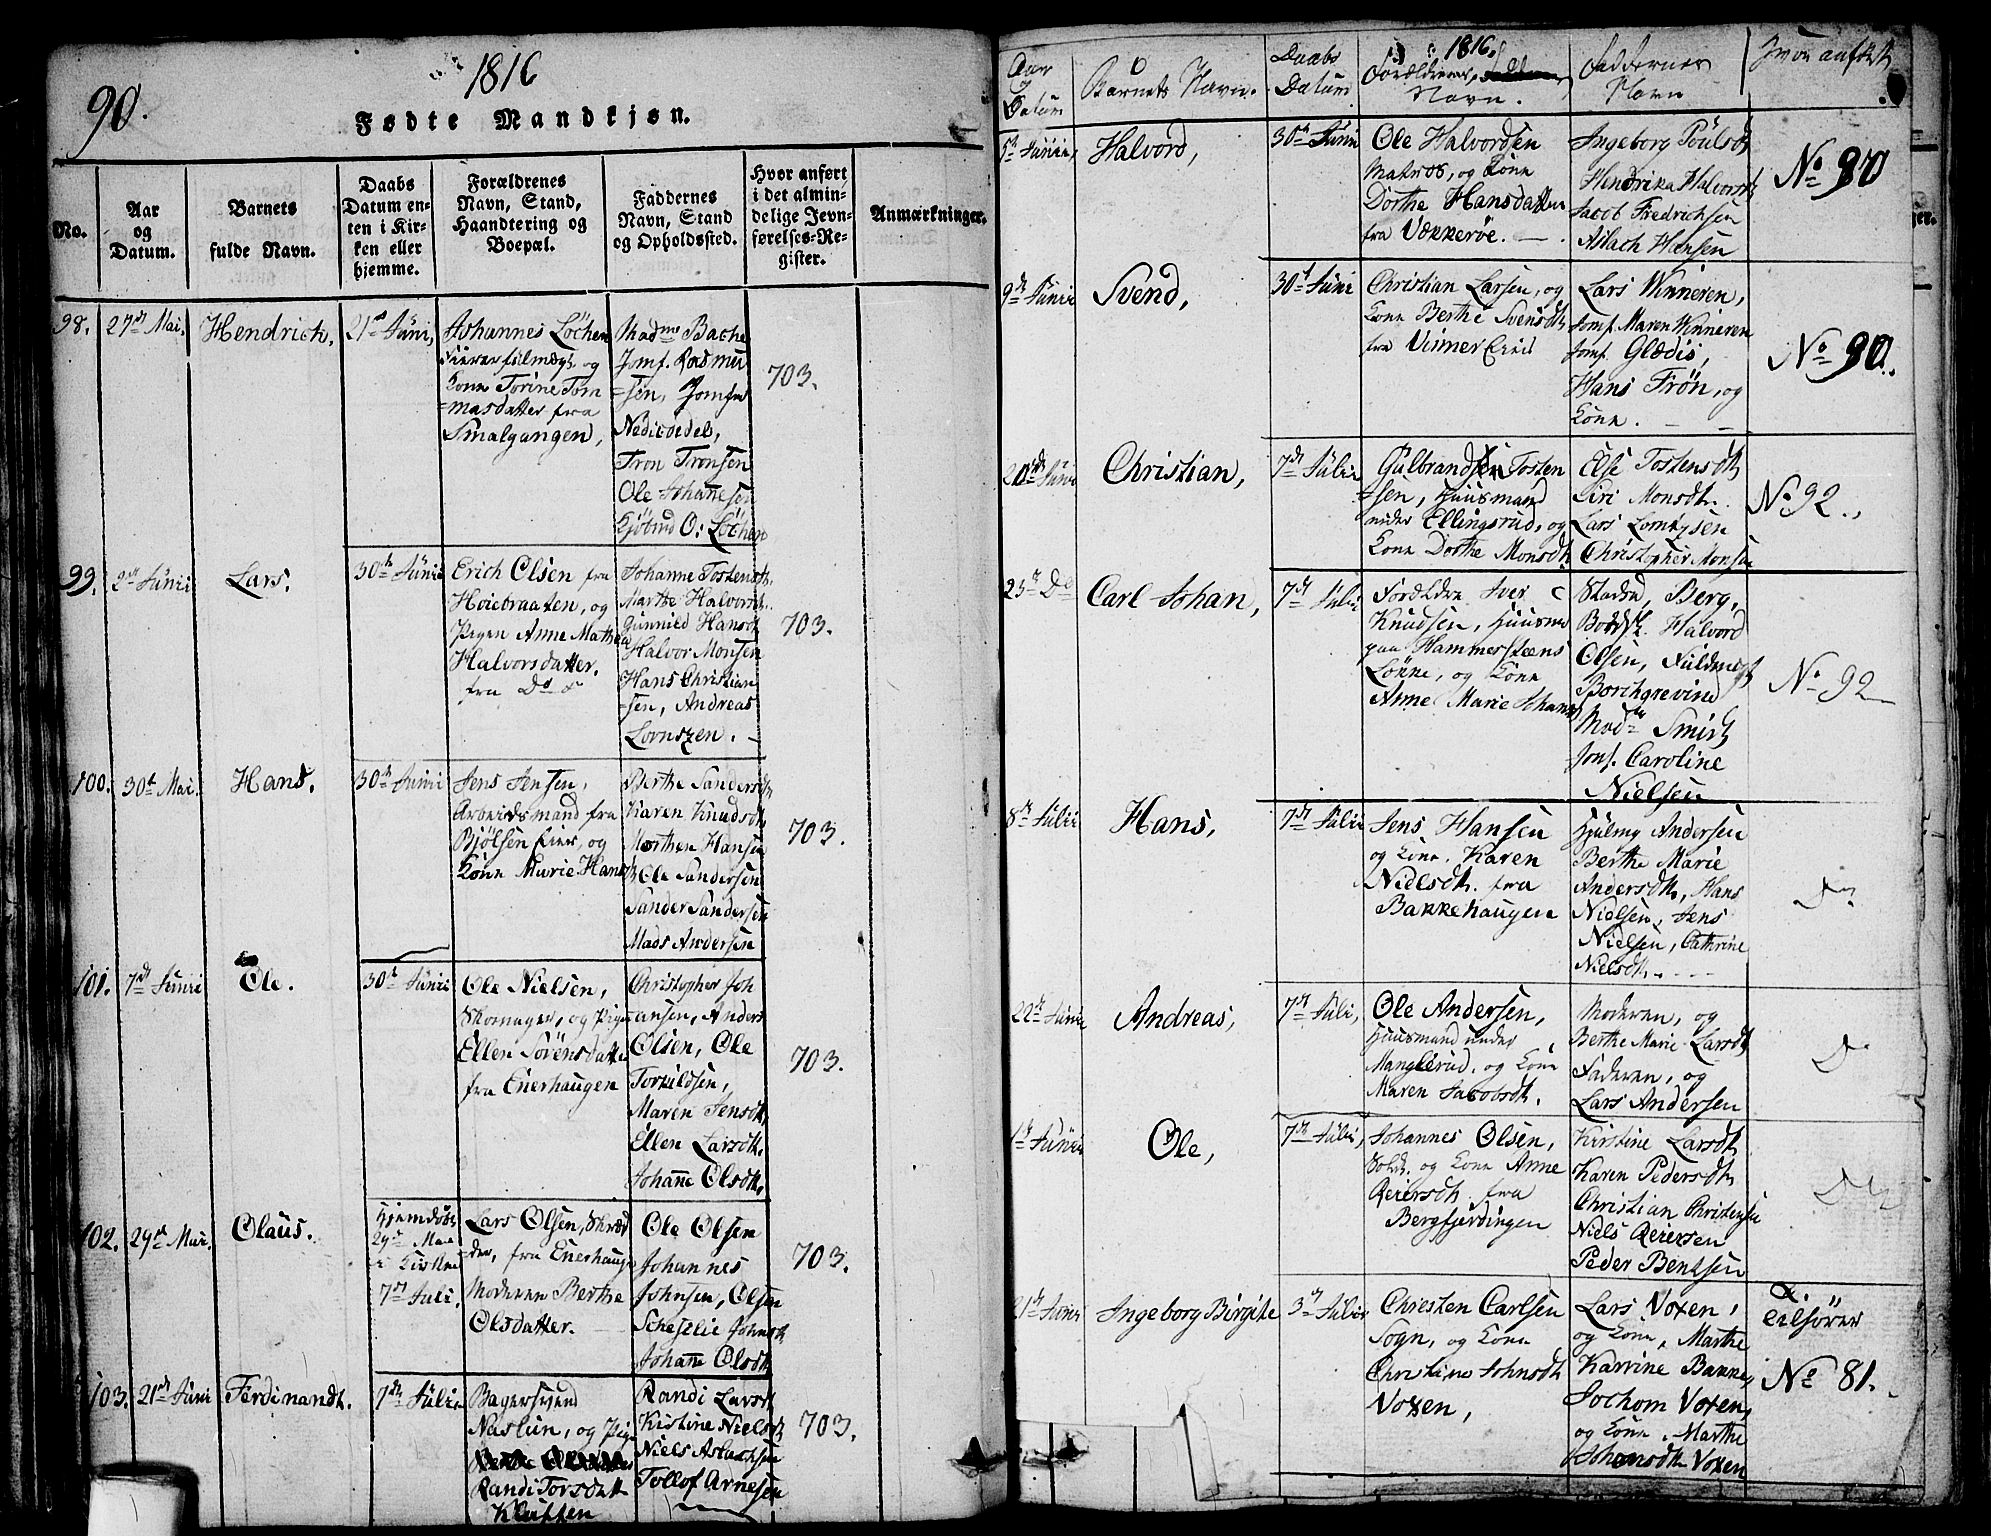 90.
1816
Fødte Mandkjøn.
No.
Aar
og
Datum.
Barnets
fulde Navn.
Daabs
Datum en-
ten i Kir-
ken eller
hjemme.
Forældrenes
Navn, Stand,
Haandtering og
Boepæl.
Faddernes
Navn, Stand
og Opholdssted.
Hvor anført
i det almin-
delige Jevn-
førelses-Re-
gister.
Anmærkninger.
98.
27de Mai.
Hendrich.
21de Juni,
Johannes Løchen
og
Kone Torine Tom
=masdatter fra
Smalgangen,
Madme Bache
Jomf. Rasmus
=sen, Jomfru
Tron Tronsen
Ole Johannesen
Kjøbmd O: Løchen
703.
99.
2den Juni
Lars.
30te Juni
Erich Olsen fra
Høiebraaten, og
Pigen Anne Mathea
Halvorsdatter.
fra Do
Johanne Tostensdtr
Marthe Halvorsdtr.
Gunnild Hansdtr
Halvor Monsen
Hans Christian
=sen, Andreas
703.
100.
30te Mai.
Hans.
30te Juni
Jens Jensen,
Arbeidsmand fra
Bjølsen Eier, og
Kone Marie Hansdtr
Berthe Sandersdtr
Karen Knudsdtr
Morthen Hansen
Ole Sandersen
Sander Sandersen
Mads Andersen
703.
101.
7de Juni
Ole.
30te Juni
Ole Nielsen,
Skomager, og Pigen
Ellen Sørensdatter
fra Enerhaugen
Christopher Joh
ansen, Anders
Olsen, Ole
Torkildsen,
Maren Jensdtr,
Ellen Larsdtr.
Johanne Olsdtr.
703.
102.
29de Mai.
Olaus.
Hjemdøbt
29de Mai
i Kirken
7de Juli.
Lars Olsen, Skræd
der, fra Enerhaugen
Moderen Berthe
Olsdatter.
Ole Olsen
Johannes
Johnsen, Olsen
Johnsdtr
Johanne Olsdtr
703.
103.
21de Juni
Ferdinandt.
7de Juli
Bagersvend
Naslun, og Pige
Randi Torsdtr
Randi Larsdtr
Kirstine Nielsdtr
Niels Aslachsen
Tollof Arnesen
703.
Aar
og
Datum
Barnets Navn.
Daabs
Datum
1816.
Forældrenes
Navn.
Faddernes
Navn
Hvor anført
5te Junii,
Halvord,
30te Juni
Ole Halvordsen
Matros, og Kone
Dorthe Hansdatter
fra Vækkerøe.
Ingeborg Poulsdtr
Hendrika Halvorsdtr
Jacob Fredrichsen
Aslach Hansen
No 90
9de Junii
Svend,
30te Juni
Christian Larsen, og
Kone Berthe Svensdtr
fra Vinner Eier
Lars Winneren,
Jomf. Maren Winneren
Jomf. Glædis,
Hans Frøn, og
Kone.
No 90.
20de Juni
Christian,
7de Julii
Gulbrandsen Tosten
=sen, Huusmand
under Ellingsrud, og
Kone Dorthe Monsdtr
Else Tostensdtr
Siri Monsdtr.
Lars
Christopher Monsen
No 92.
23de Do
Carl Johan,
7de Julii
Forældre Iver
Knudsen, Huusmd
paa Hammersteens
Løkke, og Kone
Anne Marie Johansdtr
Berg,
Halvord
Olsen,
Borchgrevind
Madme Smidt
Jomf. Caroline
Nielsen
No 92
8de Julii
Hans,
7de Julii
Jens Hansen
og Kone. Karen
Nielsdtr. fra
Bakkehaugen
Andersen
Berthe Marie
Andersdtr, Hans
Nielsen, Jens
Nielsen, Cathrine
Nielsdtr.
Do
22de Junii
Andreas,
7de Juli,
Ole Andersen,
Huusmand under
Manglerud, og Kone
Maren Jacobsdtr.
Moderen, og
Berthe Marie Larsdtr
Faderen, og
Lars Andersen
Do
1te Junii
Ole,
7de Juli,
Johannes Olsen,
Sold. og Kone Anne
Reiersdtr fra
Bergfjerdingen
Kirstine Larsdtr
Karen Pedersdtr
Christian Christensen
Niels Reiersen
Peder Bentsen
Do
21de Juni
Ingeborg Birgite
3de Julii
Christen Carlsen
Sogn, og Kone
Christine Johnsdtr
Voxen,
Lars Voxen,
og Kone, Marthe
Karrine Bakken,
Jochom Voxen,
og Kone, Marthe
Johansdtr Voxen
Tilføier
No 81.